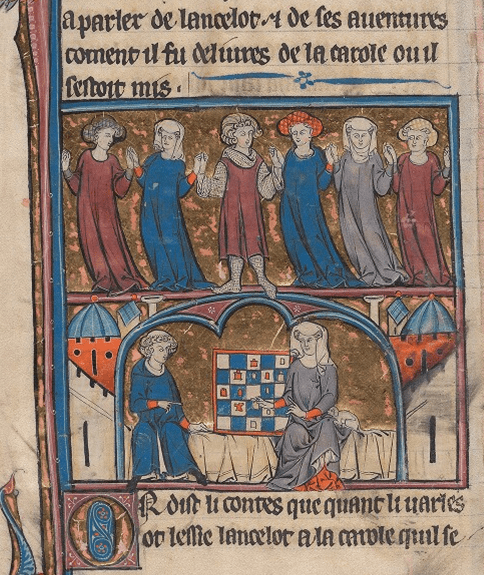 a parler de lancelot ⁊ de ses auentures
coment il fu deliures de la carole ou il
sestoit mis .
OR dist li contes que quant li uarles
ot lessie lancelot a la carole quil se